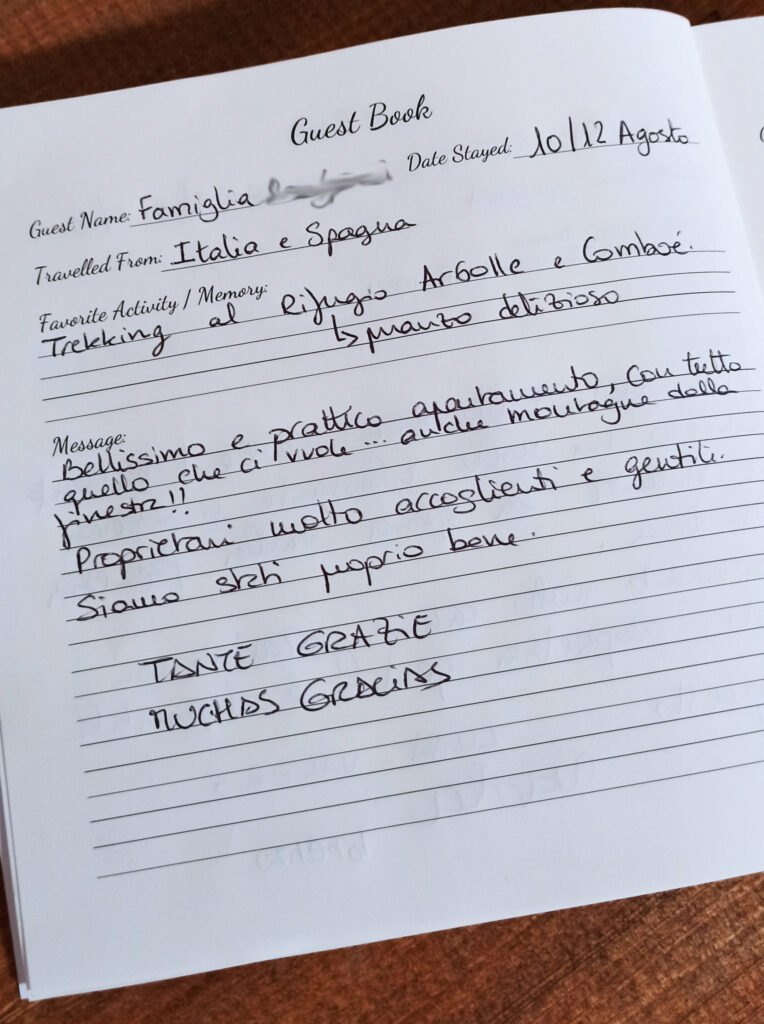 Guest Book
Date Stayed: 10/12 Agosto
Guest Name: Famiglia
Travelled From: Italia e Spagna
Favorite Activity / Memory:
Trekking al Rifugio Arbolle e Comboé.
↳ pranzo delizioso
Message:
Bellissimo e prattico appartamento, con tutto
quello che ci vuole... anche montagne dalla
finestra!!
Proprietari molto accoglienti e gentili.
Siamo stati proprio bene.
TANTE GRAZIE
MUCHAS GRACIAS